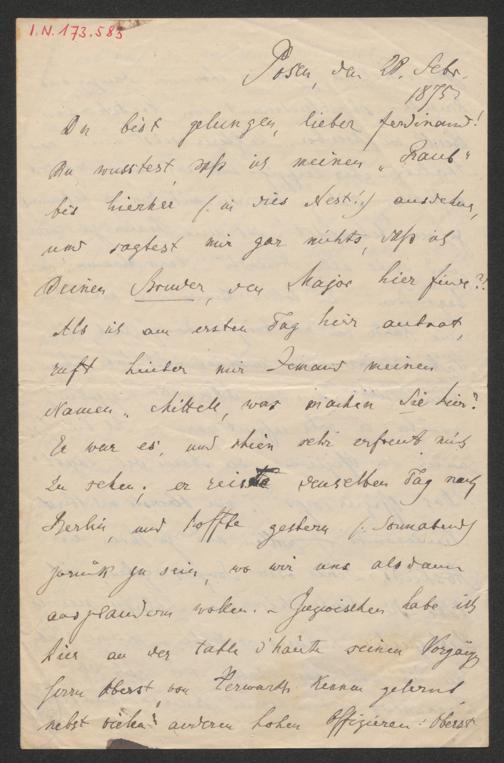 I.N. 173.583
Posen, den 28. Febr.
1875
Du bist gelungen, lieber Ferdinand!
Du wusstest, daß ich meinen „Raub“
bis hierher (: in dies Nest! :) ausdehne,
und sagtest mir gar nichts, daß ich
Deinen Bruder, den Major hier finde?!
Als ich am ersten Tag hier antrat,
ruft hinter mir Jemand meinen
Namen „ was machen Sie hier?
Er war es, und schien sehr erfreut mich
zu sehen; er reiste denselben Tag nach
Berlin, und hoffte gestern (: Sonnabend)
zurück zu sein, wo wir uns alsdann
ausplaudern wollen. – Inzwischen habe ich
hier an der table d'hôte seinen Vorgänger
Herrn Oberst von Herwarth kennen gelernt,
nebst vielen anderen hohen Offizieren: Oberst